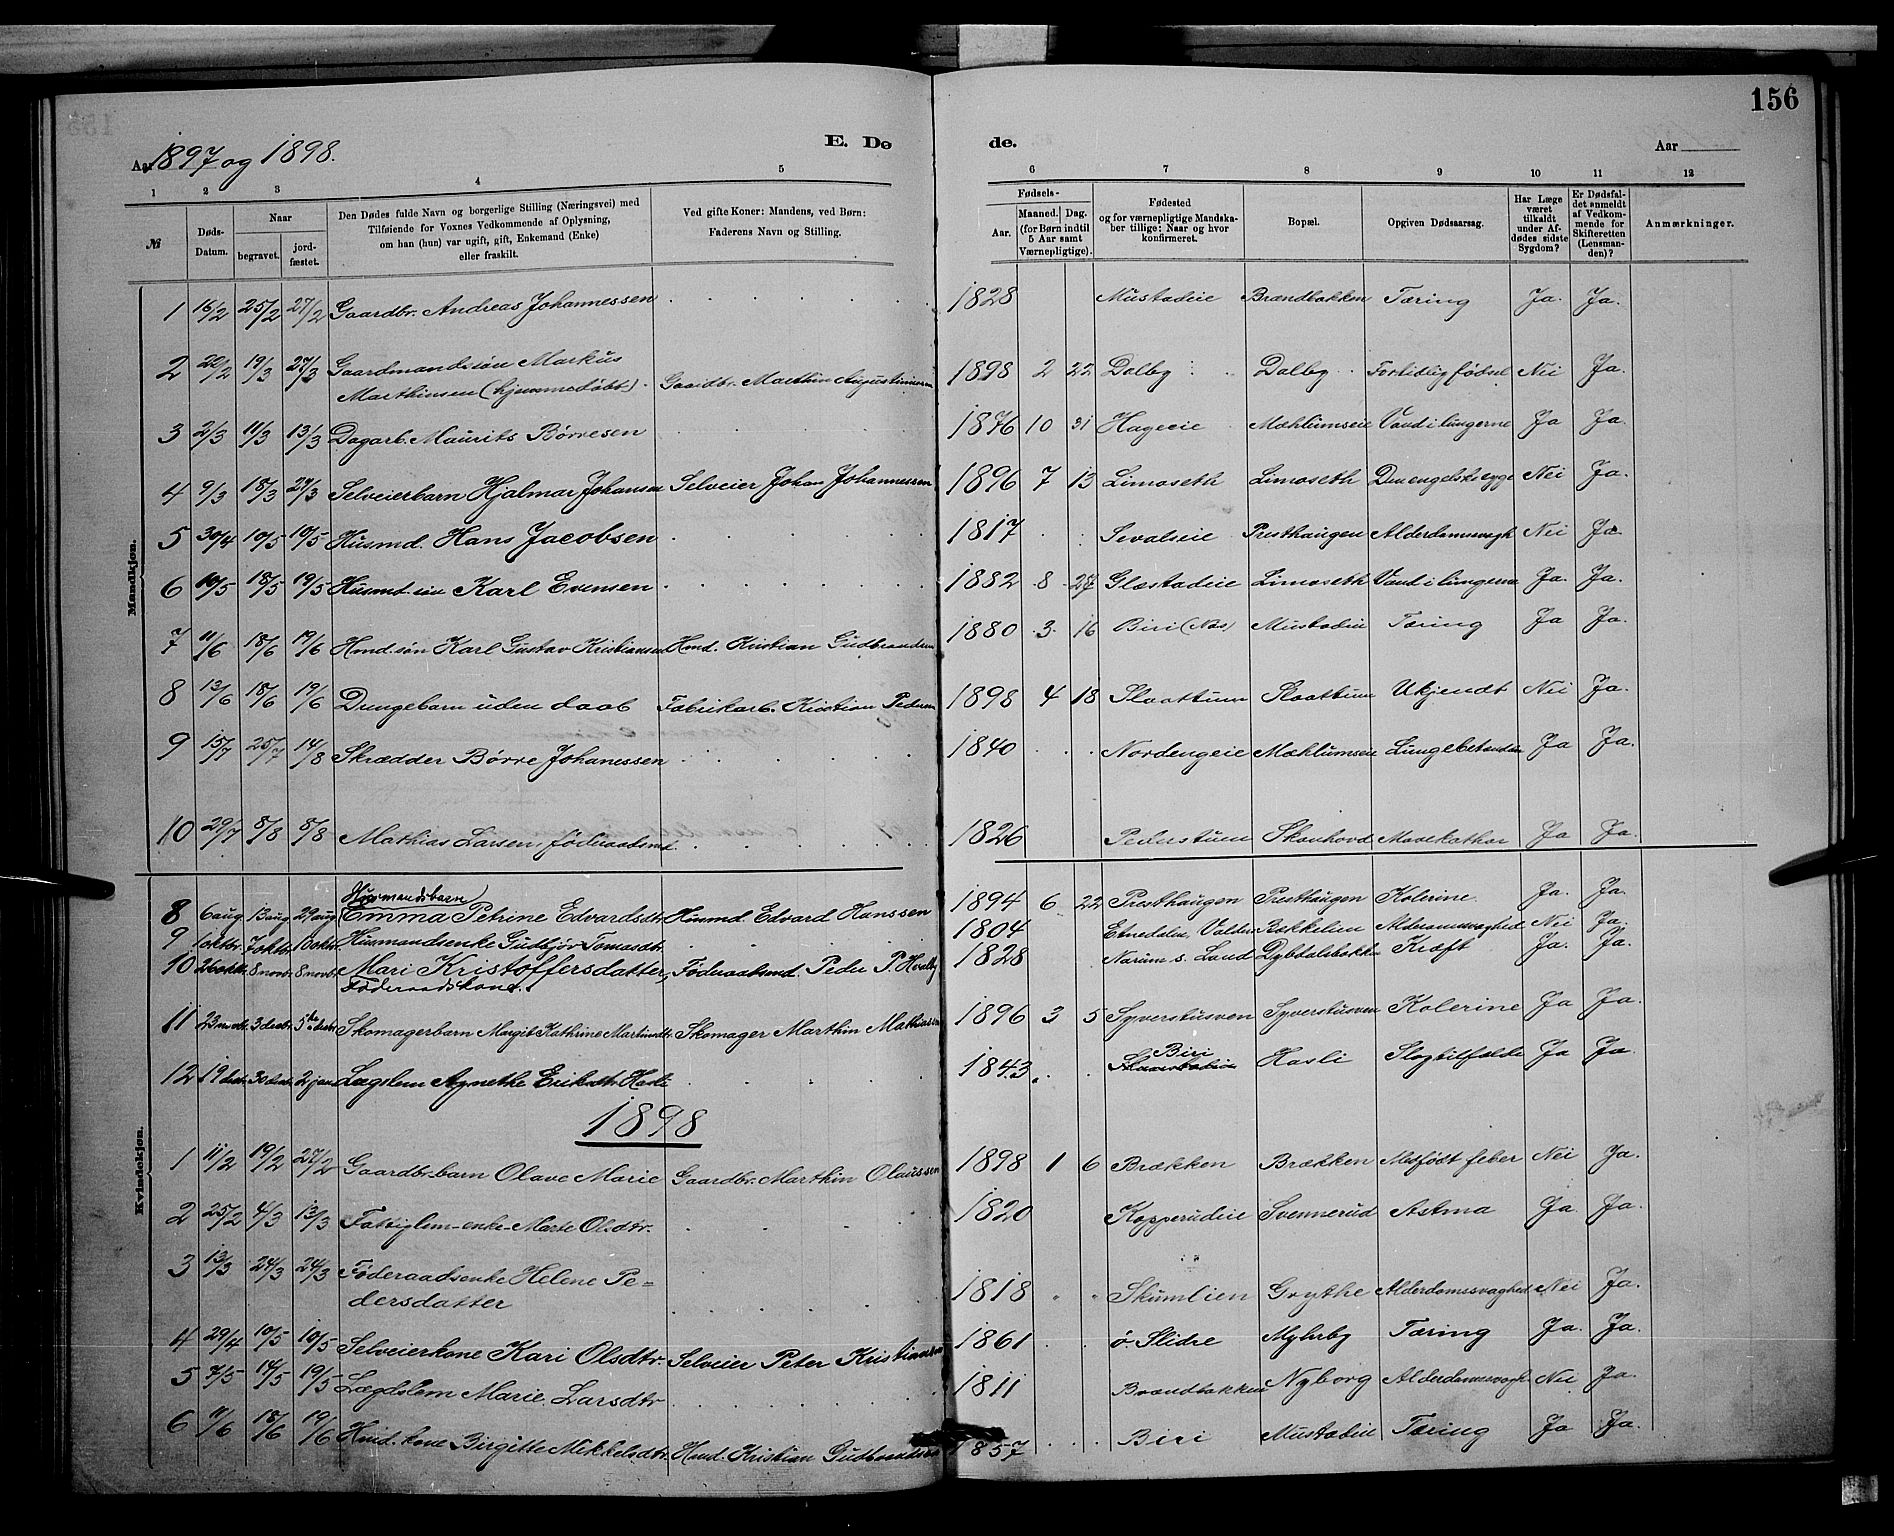 156
Aar 1897 og 1898.
E. Dø
de.
Aar
1 2 3 4 5
6 7 8 9 10 11 12
№
Døds-Datum.
Naar
begravet.
jord-fæstet.
Den Dødes fulde Navn og borgerlige Stilling (Næringsvei) med
Tilføiende for Voxnes Vedkommende af Oplysning,
om han (hun) var ugift, gift, Enkemand (Enke)
eller fraskilt.
Ved gifte Koner: Mandens, ved Børn:
Faderens Navn og Stilling.
Fødsels-
Aar.
Maaned. Dag.
(for Børn indtil
5 Aar samt
Værnepligtige).
Fødested
og for værnepligtige Mandska-
ber tillige: Naar og hvor
konfirmeret.
Bopæl.
Opgiven Dødsaarsag.
Har Læge
været
tilkaldt
under Af-
dødes sidste
Sygdom?
Er Dødsfal-
det anmeldt
af Vedkom-
mende for
Skifteretten
(Lensman-
den)?
Anmærkninger.
Mandkjøn.
1 16/2 25/2 27/2 Gaardbr. Andreas Johannessen 1828 Mustadeie Brandbakken Tæring Ja. Ja.
2 22/2 19/3 27/3 Gaardmandssøn Markus
Marthinsen (hjemmedøbt). Gaardbr. Marthin Augustinussen 1898 2 22 Dalby Dalby Fortidlig fødsel Nei Ja.
3 2/3 11/3 13/3 Dagarb. Maurits Børresen 1876 10 31 Hageeie Mæhlumseie Vand i lungerne Ja Ja.
4 9/3 18/3 27/3 Selveierbarn Hjalmar Johansen Selveier Johan Johannessen 1896 7 13 Limoseth Limoseth Den engelske syge Nei Ja.
5 30/4 10/5 10/5 Husmd. Hans Jacobsen 1817 Sevalseie Presthaugen Alderdomssvagh Nei Ja
6 10/5 18/5 19/5 Husmd. søn Karl Evensen 1882 8 27 Glæstadeie Limoseth Vand i lungerne Ja. Ja.
7 11/6 18/6 19/6 Hmd. søn Karl Gustav Kristiansen Hmd. Kristian Gudbrandsen 1880 3 16 Biri (Næs) Mustadeie Tæring Ja Ja.
8 13/6 18/6 19/6 Drengebarn uden daab Fabrikarb. Kristian Pedersen 1898 4 18 Slaattum Slaattum Ukjendt Nei Ja.
9 15/7 25/7 14/8 Skrædder Børre Johanessen 1840 Nordengeie Mæhlumseie Lungebetændelse Ja Ja.
10 29/7 8/8 8/8 Mathias Larsen, Føderaadsmd. 1826 Pederstuen Skonhovd Mavekathar Ja Ja.
Kvindekjøn.
Husmandsbarn
8 6 aug. 13 aug. 29 aug. Emma Petrine Edvardsdtr. Husmd. Edvard Hanssen 1894 6 22 Presthaugen Presthaugen Kolerine Ja. Ja.
9 1 oktbr. 7 oktbr. 10 oktbr. Husmandsenke Gudbjør Tomasdtr. 1804 Etnedalen, Valders Bækkelien Alderdomssvaghed Nei Ja.
10 26 oktbr. 8 novbr. 8 novbr. Mari Kristoffersdatter, Føderaadsmd. Peder P. Hvalby 1828 s. Land Dybdalsbakken Kræft Ja. Ja.
Føderaadskone.
11 23 novbr. 3 decbr. 5te decbr. Skomagerbarn Margit Kathrine Martinsdtr. Skomager Marthin Mathiassen 1896 3 5 Syverstuven Syverstuven Kolerine Ja Ja.
12 19 decbr. 30 decbr. 2 jan. Lægslem Agnethe Eriksdtr. Hasli 1843 Biri Hasli Slagtilfælde Ja Ja.
1898
1 11/2 19/2 27/2 Gaardbr. barn Olave Marie Gaardbr. Marthin Olaussen 1898 1 6 Brækken Brækken Medfødt feber Nei Ja.
2 25/2 4/3 13/3 Fattiglem-enke Marte Olsdtr. 1820 Kopperudeie Svennerud Astma Ja. Ja.
3 13/3 24/3 24/3 Føderaadsenke Helene Pe-
dersdatter 1818 Skumlien Grythe Alderdomssvaghed Nei Ja.
4 29/4 10/5 10/5 Selveierkone Kari Olsdtr. Selveier Peter Kristiansen 1861 ø. Slidre Myhrby Tæring Ja. Ja.
5 7/5 14/5 19/5 Lægdslem Marie Larsdtr 1811 Brandbakken Nyborg Alderdomssvagh. Nei Ja.
6 11/6 18/6 19/6 Hmd. kone Birgitte Mikkelsdtr. Hmd. Kristian Gudbrandsen 1857 Biri Mustadeie Tæring Ja Ja.